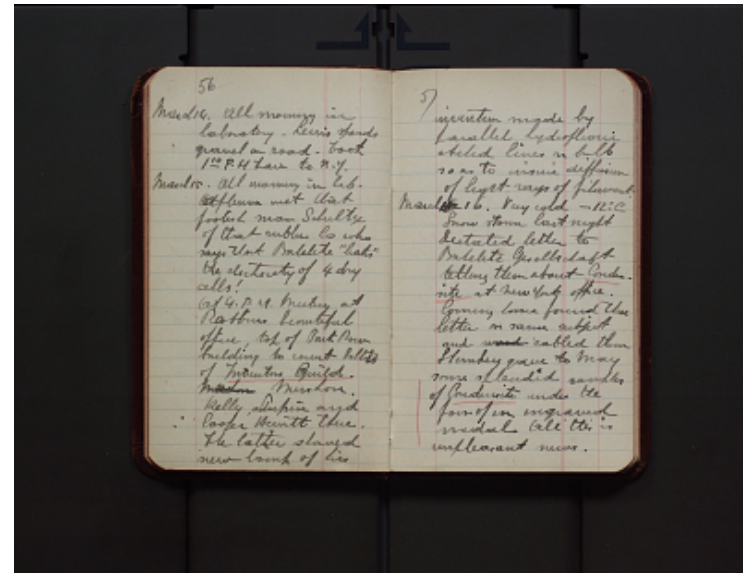 56
March 14. All morning in
laboratory. Lewis spreads
gravel on road. Took
1 00 P.M. train to N.Y.
March 15. All morning in lab.
afternoon met that
foolish man Schultze
of that rubber Co who
says that Bakelite "leaks"
the electricity of 4 dry
cells!
At 4. P.M. Meeting at
Robbins beautiful
office, top of Park Row
building to
of Inventors Guild.
Mershon,
Kelly, Dufrin and
Cooper Hewitt there.
The latter showed
new lamp of his
57
invention made by
parallel hydrofluoric
etched lines in bulb
so as to insure diffusion
of light rays of filament.
March 16. Very cold -12°C
Snow storm last night
Dictated letter to
Bakelite Gesellschaft
telling them about Conden-
site at New York office.
Coming home found their
letter on same subject
and cabled them
Steinberg gave to May
some splendid samples
of Condensite under the
form of an engraved
medal. All this is
unpleasant news.